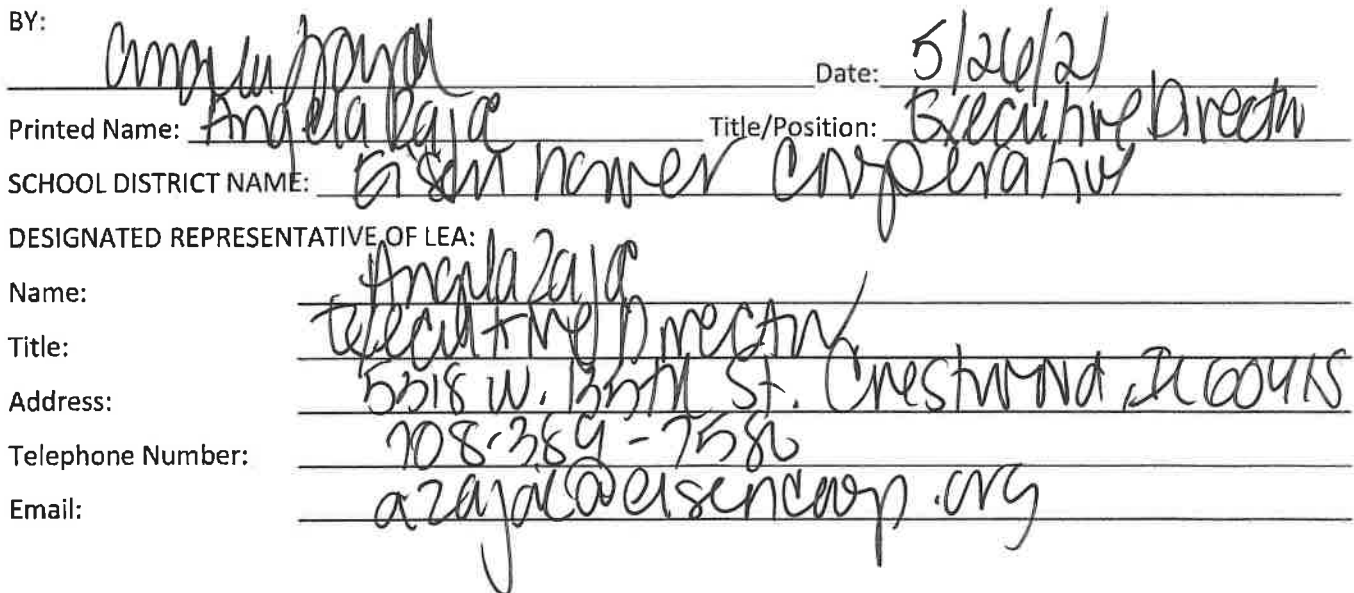 BY:
Date: 5/26/21
Printed Name: Angela Zajac Title/Position: Executive Director
SCHOOL DISTRICT NAME: Eisenhower Cooperative
DESIGNATED REPRESENTATIVE OF LEA:
Name: Angela Zajac
Title: Executive Director
Address: 5318 W. 135th St. Crestwood, IL 60418
Telephone Number: 708-389-7580
Email: azajac@eisencoop.org